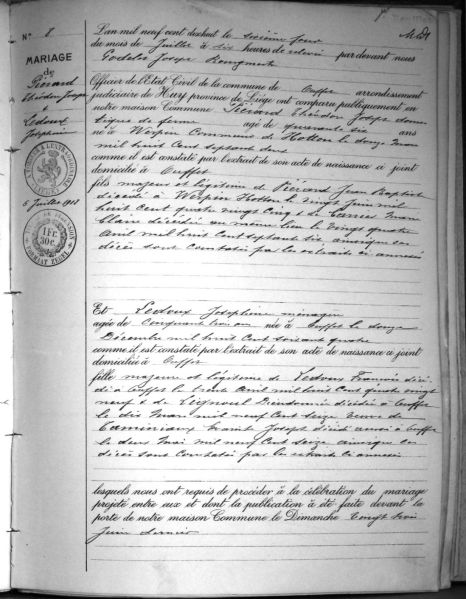 N° 8
MARIAGE
de
Piérard
Théodor Joseph
&
Ledoux
Joséphine
6 Juillet 1918
1 Fr
30c.
L'an mil neuf cent dixhuit le sixième jour
du mois de Juillet à six heures de relevée par devant nous
Godelet Joseph Bourgmestre
Officier de l'Etat Civil de la commune de Ouffet arrondissement
judiciaire de Huy province de Liège ont comparu publiquement en
notre maison Commune Piérard Théodor Joseph domes
tique de ferme âgé de quarante six ans
né à Werpin Commune de Hotton le douze Mai
mil huit cent septante deux
comme il est constaté par l'extrait de son acte de naissance ci joint
domicilié à Ouffet
fils majeur et légitime de Piérard Jean Baptiste
décédé à Werpin Hotton le vingt juin mil
huit cent quatre vingt cinq & de
décédée au même lieu le vingt quatre
Avril mil huit cent septante six ainsi que ces
décès sont constatés par les extraits ci annexés
Et Ledoux Joséphine ménagère
agée de cinquante trois ans née à Ouffet le douze
Décembre mil huit cent soixante quatre
comme il est constaté par l'extrait de son acte de naissance ci joint
domiciliée à Ouffet
fille majeure et légitime de Ledoux François décé
dé à Ouffet le trente Avril mil huit cent quatre vingt
neuf & de Dieudonnée décédée à Ouffet
le dix Mars mil neuf cent seize veuve de
Joseph décédé aussi à Ouffet
le deux Mai mil neuf cent seize ainsi que ces
décès sont constatés par les extraits ci annexés
lesquels nous ont requis de procéder à la célébration du mariage
projeté entre eux et dont la publication a été faite devant la
porte de notre maison Commune le Dimanche vingt trois
juin dernier